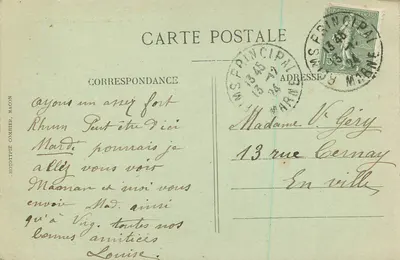 CARTE POSTALE
CORRESPONDANCE
ADRESSE
ayons un assez fort
Rhum Peut être d'ici
Mardi pourrais je
allez vous voir
Maman et moi vous
envoie Mad. ainsi
qu'à toutes nos
bonnes amitiés
Louise.
Madame Vve Géry
13 rue Cernay
En ville
REIMS PRINCIPAL
13 45
13 - 12
24
MARNE
REIMS PRINCIPAL
13 45
MARNE